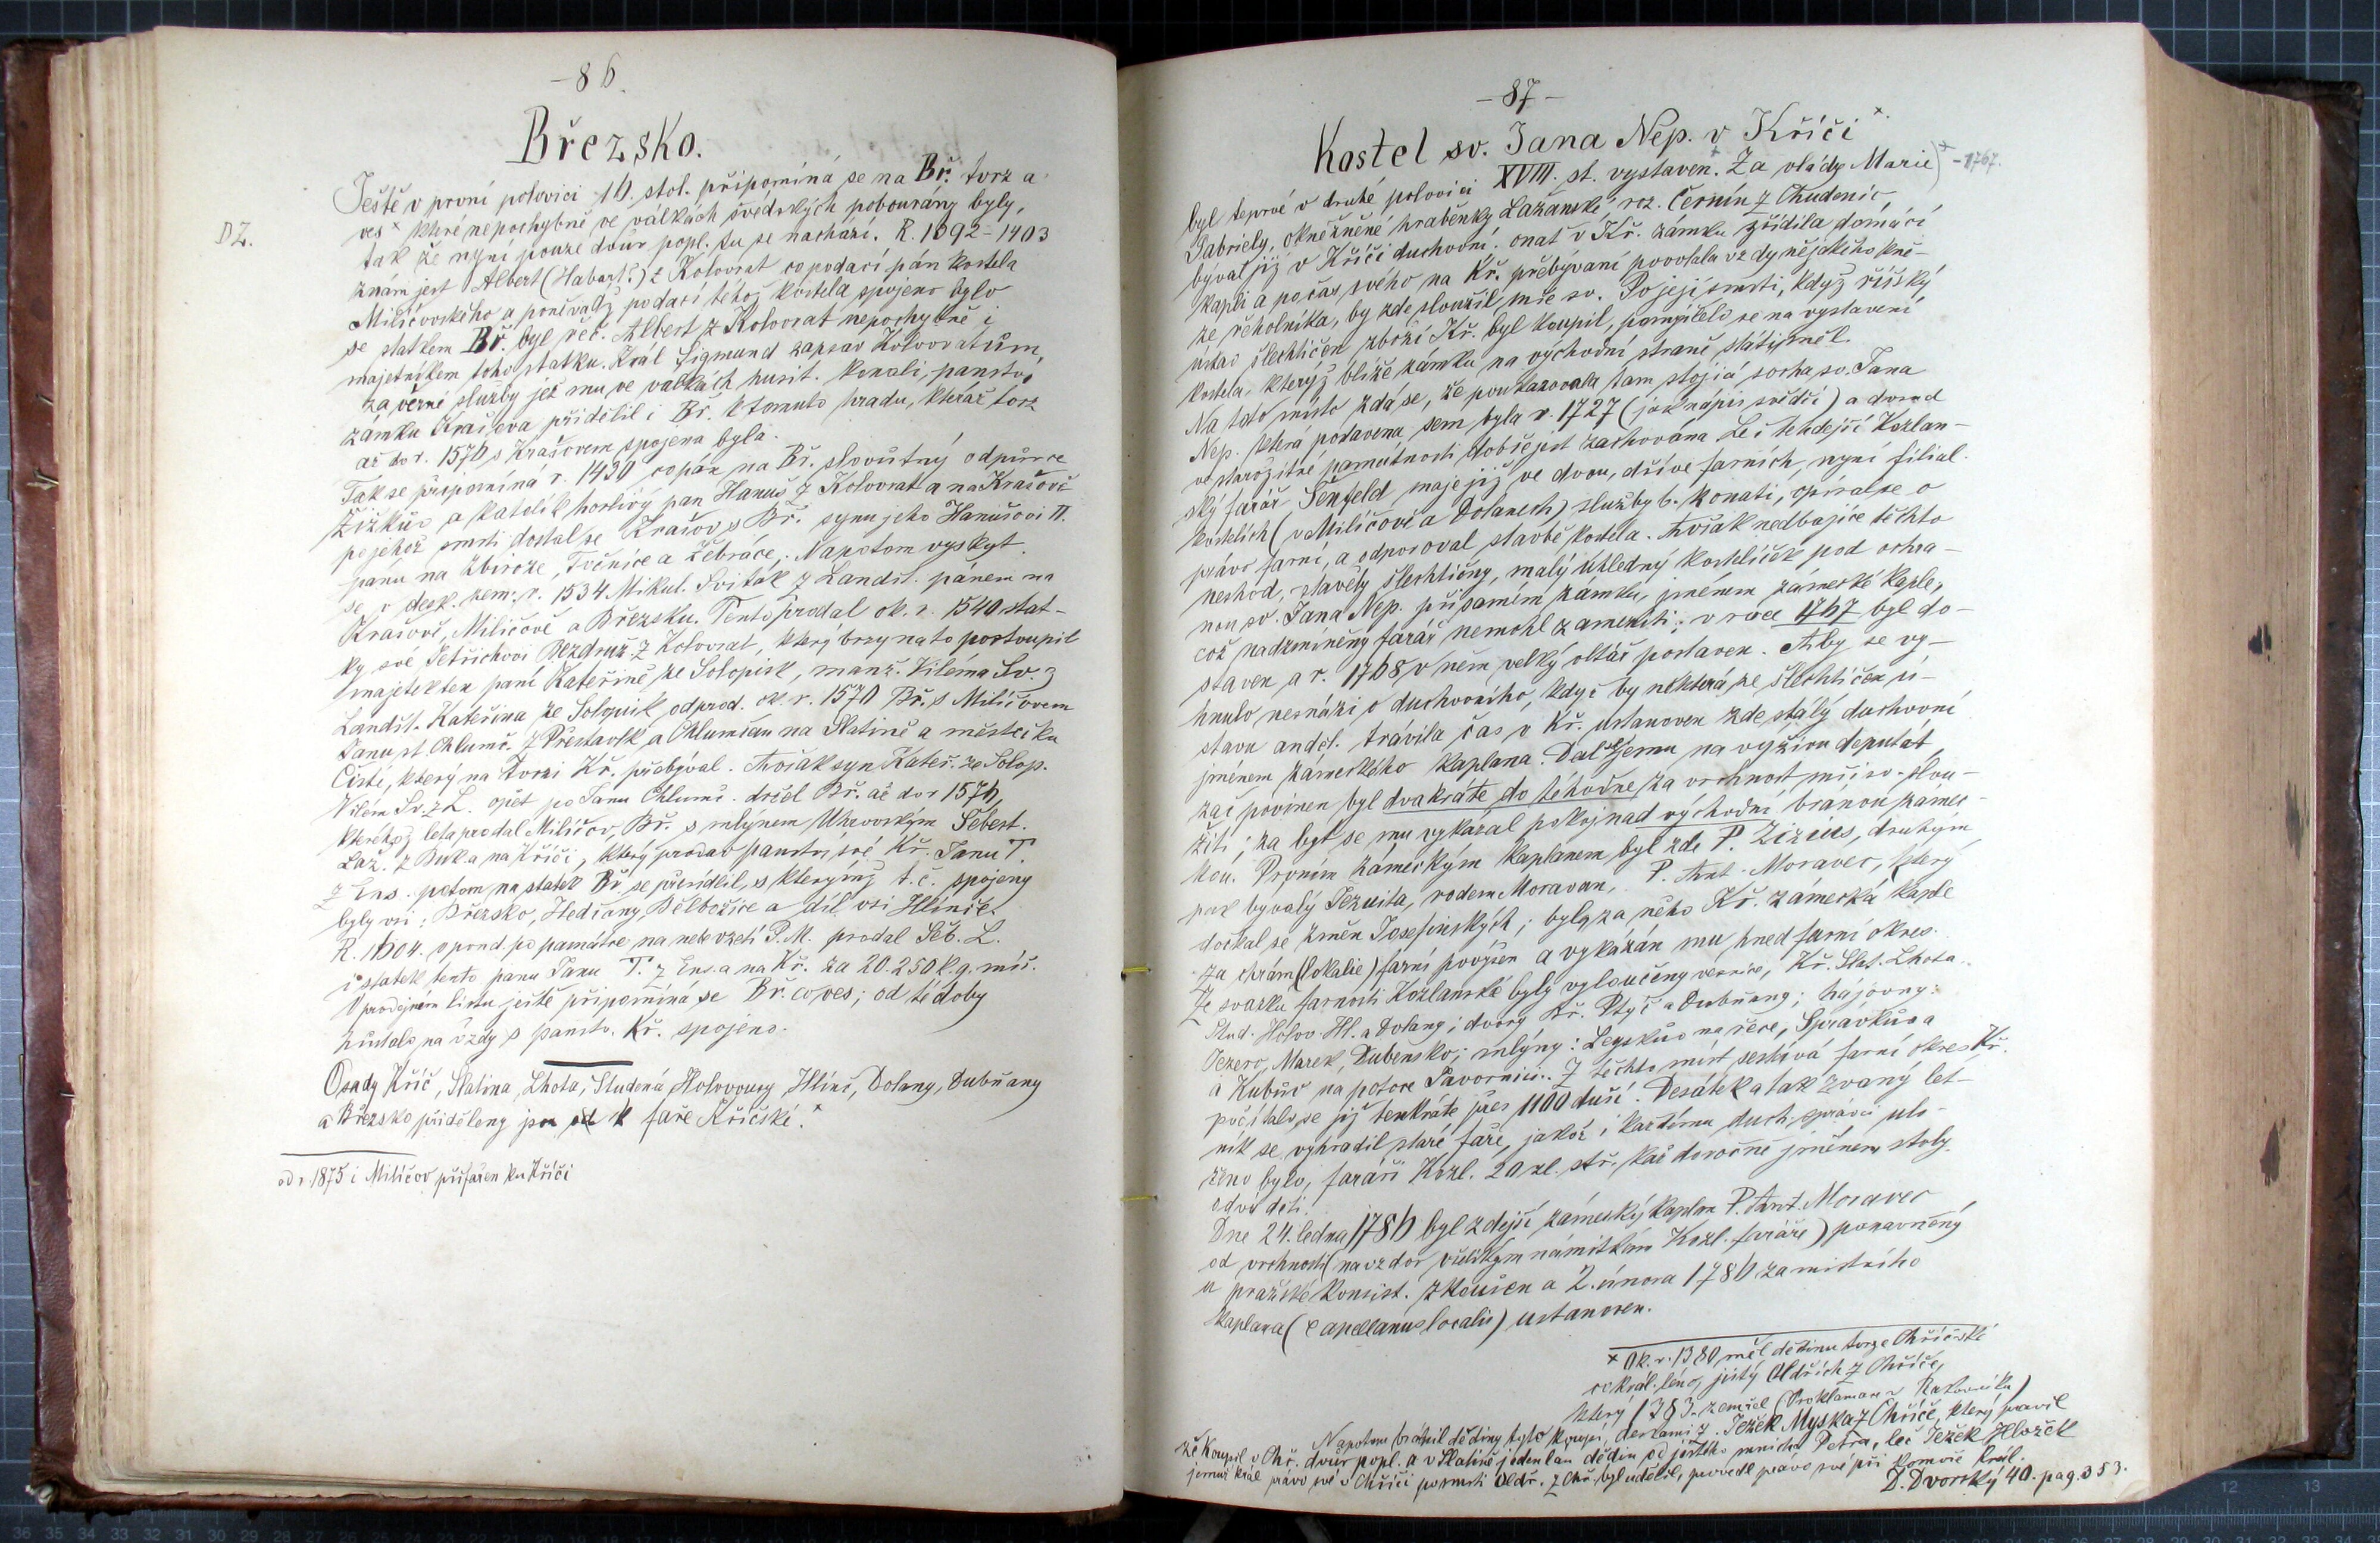 -86.
Březsko.
Ještě v první polovici 16. stol. připomíná se na Bř. tvrz a
ves × které nepochybně ve válkách švédských pobourány byly,
DZ.
tak že nyní pouze dvůr popl. tu se nachází. R. 1392-1403
znám jest Albert (Habart?) z Kolovrat co podací pán kostela
Miličovského a poněvadž podací téhož kostela spojeno bylo
se statkem Bř. byl řeč. Albert z Kolovrat nepochybně i
majetníkem toho statku. Král Sigmund zapsav Kolovratům,
za věrné služby jež mu ve válkách husit. konali, panství
zámku Krašova přidělil i Bř. k tomuto hradu, kteráž tvrz
až do r. 1576 s Krašovem spojena byla.
Tak se připomíná r. 1430 co pán na Bř. slovutný odpůrce
Žižkův a katolík horlivý pan Hanuš z Kolovrat a na Krašově
po jehož smrti dostal se Krašov s Bř. synu jeho Hanušovi II.
pánu na Zbiroze, Točníce a Žebráce. Napotom vyskyt.
se v desk. zem. r. 1534 Mikul. Sviták z Landšt. pánem na
Krašově, Miličově a Březsku. Tento prodal ok. r. 1540 stat-
ky své Petřichovi Bezdruž. z Kolovrat, který brzy na to postoupil
majetek ten paní Kateřině ze Solopisk, manž. Viléma Sv. z
Landšt. Kateřina ze Solopisk odprod. ok. r. 1570 Bř. s Miličovem
Janu st. Chlumč. z Přestavlk a Chlumčan na Slatině a městečku
Čisté, který na tvrzi Kř. přebýval. Avšak syn Kateř. ze Solop.
Vilém Sv. z L. opět po Janu Chlumč. držel Bř. až do r 1576,
kteréhož leta prodal Miličov, Bř. s mlýnem Uhrovským Šebest.
Laž. z Buk. a na Kříči, který prodav panství své Kř. Janu T.
z Ens. potom na statek Bř. se přesídlil, s kterýmž t. č. spojeny
byly vsi: Březsko, Hedčany, Bělbožice a díl vsi Hlínče.
R. 1604. v pond. po památce na nebe vzetí P. M. prodal Šeb. L.
i statek tento panu Janu T. z Ens. a na Kř. za 20.250 k. g. míš.
V prodejním listu ještě připomíná se Bř. co ves; od té doby
zůstalo na vždy s panstv. Kř. spojeno.
Osady Kříč, Slatina, Lhota, Studená, Holovousy, Hlíně, Dolany, Dubňany
a Březsko přiděleny jsou k faře Kříčské. ×
od r. 1875 i Miličov přifařen ku Kříči
-87-
Kostel sv. Jana Nep. v Kříči ×
byl teprvé v druhé polovici XVIII. st. vystaven. × Za vlády Marie ) × -1767.
Gabriely, okněžněné hraběnky Lažanské, roz. Černín z Chudenic,
býval již v Kříči duchovní. onať v Kř. zámku zřídila domácí
kapli a po čas svého na Kř. přebývání povolala vždy nějakého kně-
ze řeholníka, by zde sloužil mše sv. Po její smrti, když říšský
ústav šlechtičen zboží Kř. byl koupil, pomýšlelo se na vystavení
kostela, kterýž blíže zámku na východní straně státi měl.
Na toto místo zdá se, že poukazovala tam stojící socha sv. Jana
Nep. která postavena sem byla r. 1727 (jak nápis svědčí) a dosud
co starožitné památnosti dobře jest zachována. Leč tehdejší Kozlan-
ský farář Šenfeld maje již ve dvou, dříve farních, nyní filial.
kostelích (v Miličově a Dolanech) služby b. konati, opíral se o
právo farní, a odporoval stavbě kostela. Avšak nedbajíce těchto
neshod, stavěly šlechtičny, malý úhledný kostelíček pod ochra-
nou sv. Jana Nep. při samém zámku, jménem zámecké kaple,
což nadzmíněný farář nemohl zameziti; v roce 1767 byl do-
staven a r. 1768 v něm velký oltář postaven. Aby se vy-
hnulo nesnázi o duchovního, když by některá ze šlechtičen ú-
stavu anděl. trávila čas v Kř. ustanoven zde stálý duchovní
jménem zámeckého kaplana. Dal se jemu na výživu deputát,
zač povinen byl dvakráte do téhodne za vrchnost mši sv. slou-
žiti; za byt se mu vykázal pokoj nad východní branou zámec-
kou. Prvním zámeckým kaplanem byl zde P. Zizius, druhým
pak bývalý Jezuita, rodem Moravan, P. Ant. Moravec, který
dočkal se změn Josefinských; byla za něho Kř. zámecká kaple
za chrám (lokalie) farní povýšen a vykázán mu hned farní okres.
Ze svazku farnosti Kozlanské byly vyloučeny vesnice, Kř. Slat. Lhota
Stud. Holov. Hl. a Dolany; dvory Bř. Ptyč a Dubňany; hájovny:
Jezero, Marek, Dubensko; mlýny: Legskův na řece, Spravkův a
a Kubův na potoce Javornici. Z těchto míst sestává farní okres Kř.
počítalo se již tenkráte přes 1100 duší. Desátek a tak zvaný let-
ník se vyhradil staré faře, jakož i každému duch. správci ulo-
ženo bylo, faráři Kozl. 20 zl. stř. každoročně jménem stoly
odváděti.
Dne 24. ledna 1786 byl zdejší zámecký kaplan P. Ant. Moravec
od vrchnosti (na vzdor všelikým námitkám Kozl. faráře) ponavržený
u pražské konsist. zkoušen a 2. února 1786 za místního
kaplana (capellanus localis) ustanoven.
× Ok. r. 1380 měl dědinu tvrze Chříčské
co král. léno, jistý Oldřich z Chříče,
který 1383. zemřel (Proklamace v Rakovníku)
Napotom bránil dědiny tyto koupí, deskami z. Ježek Myska z Chříče, který pravil
že koupil v Chř. dvůr popl. a v Slatině jeden lan dědin od jistého mnicha Petra, leč Ježek Hložek
jemuž král právo své v Chříči po smrti Oldř. z Chř. byl udělil, provedl právo své při komoře král.
D. Dvorský 40. pag. 353.